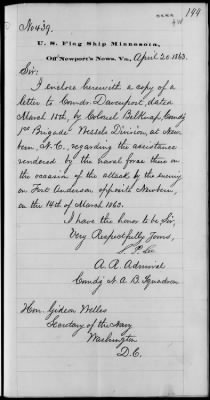 199
No 439.
U. S. Flag Ship Minnesota,
Off Newport's News, Va., April 20 1863.
Sir:
I enclose herewith a copy of a
letter to Comdr. Davenport, dated
March 15th, by Colonel Belknap, Comdg
1st Brigade Wessels Division, at New
bern, N.C., regarding the assistance
rendered by the naval force there on
the occasion of the attack by the enemy
on Fort Anderson opposite Newbern,
on the 14th of March 1863.
I have the honor to be, Sir,
Very Respectfully Yours,
S. P. Lee
A. R. Admiral
Comdg N. A. B. Squadron
Hon. Gideon Welles
Secretary of the Navy
Washington
D.C.